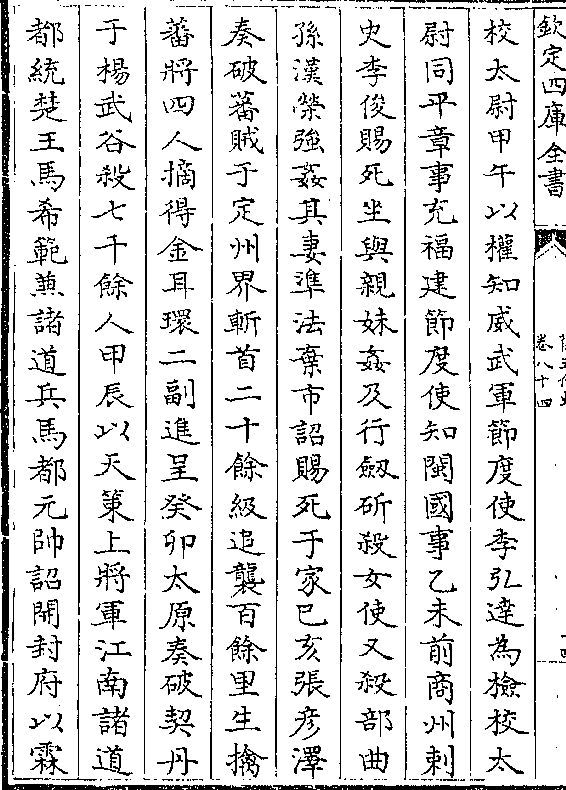 欽定四庫全書
卷八十四
校太尉甲午以權知威武軍節度使李弘達為檢校太
尉同平章事充福建節度使知閩國事乙未前商州刺
史李俊賜死坐與親妹姦及行劔斫殺女使又殺部曲
孫漢榮強姦其妻準法棄市詔賜死于家已亥張彥澤
奏破蕃賊于定州界斬首二十餘級追襲百餘里生擒
蕃將四人摘得金耳環二副進呈癸卯太原奏破契丹
于楊武谷殺七千餘人甲辰以天策上將軍江南諸道
都統楚王馬希範兼諸道兵馬都元帥詔開封府以霖